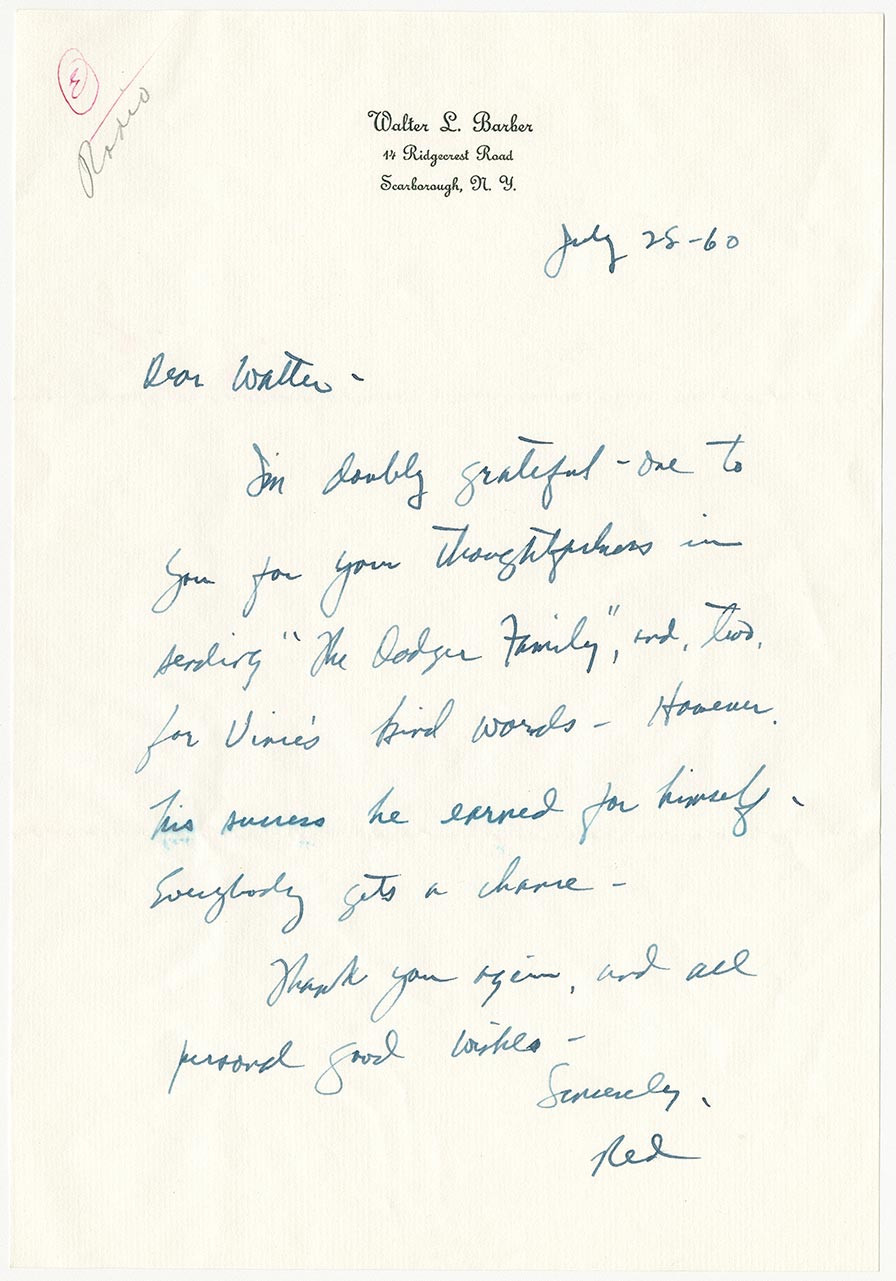 E
Radio
Walter L. Barber
14 Ridgecrest Road
Scarborough, N. Y.
July 28-60
Dear Walter -
I'm doubly grateful - one to
you for your thoughtfulness in
sending "The Dodger Family", and, two,
for Vince's kind words - However,
his success he earned for himself -
Everybody gets a chance -
Thank you again, and all
personal good wishes -
Sincerely,
Red